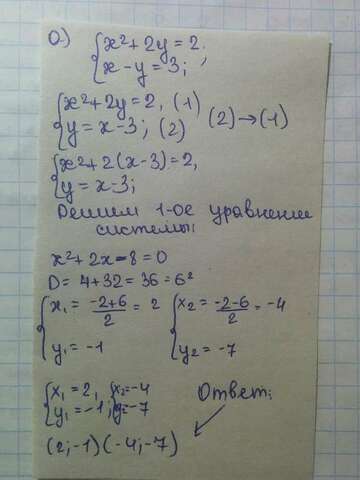 а.) { x²+2y=2
x-y=3; ;
{ x²+2y=2, (1)
y=x-3; (2) (2)→(1)
{ x²+2(x-3)=2,
y=x-3;
Решим 1-ое уравнение
системы:
x²+2x-8=0
D=4+32=36=6²
{ x₁=\frac{-2+6}{2}=2 { x₂=\frac{-2-6}{2}=-4
y₁=-1 y₂=-7
{ x₁=2, { x₂=-4
y₁=-1; y=-7 Ответ:
(2;-1)(-4;-7)